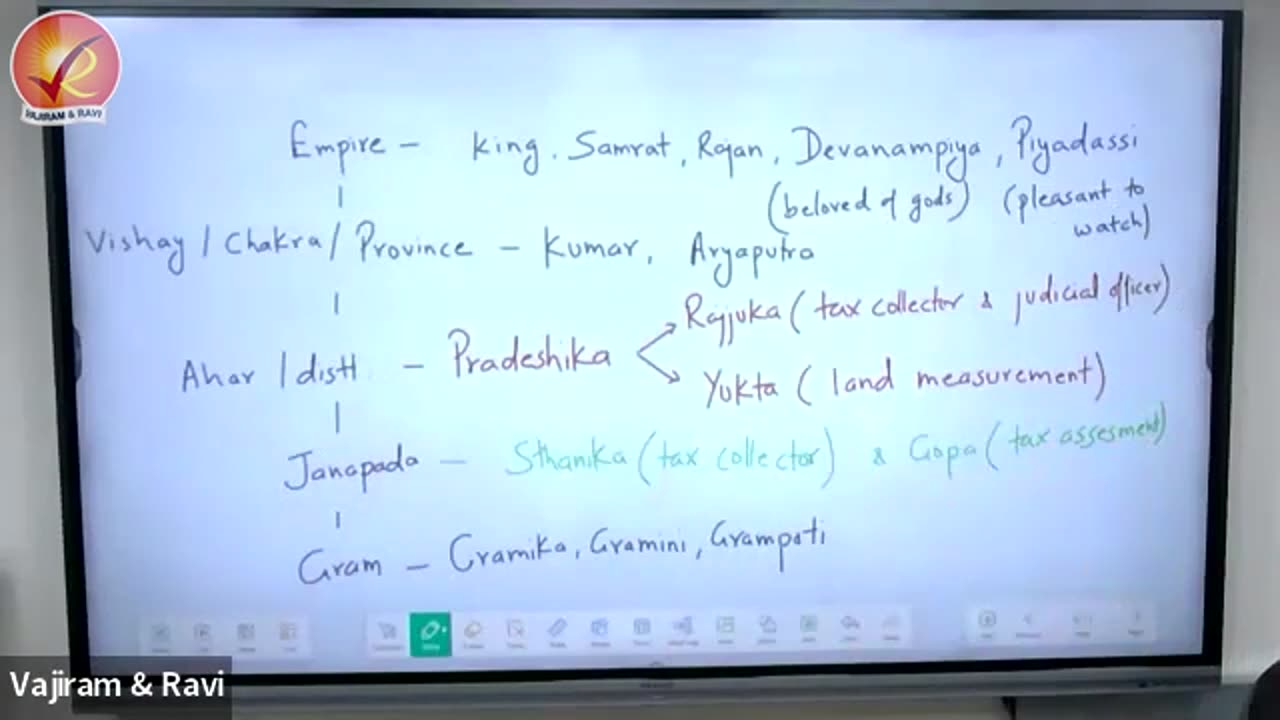 VAJIRAM & RAVI
Empire - King, Samrat, Rajan, Devanampiya, Piyadassi
(beloved of gods) (pleasant to watch)
Vishay / Chakra / Province - Kumar, Aryaputra
Rajjuka (tax collector & judicial officer)
Ahar / distt. - Pradeshika
Yukta (land measurement)
Janapada - Sthanika (tax collector) & Gopa (tax assesment)
Gram - Gramika, Gramini, Grampati
Vajiram & Ravi